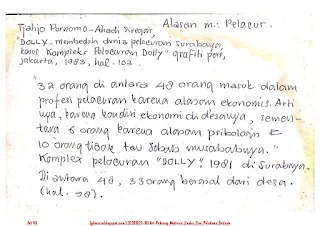 Alasan m. Pelacur.
Tjahjo Purnomo-Ashadi Siregar,
"DOLLY- membedah dunia pelacuran Surabaya,
kasus Kompleks Pelacuran Dolly" grafiti pers,
jakarta, 1983, hal. 102.
"32 orang di antara 48 orang masuk dalam
profesi pelacuran karena alasan ekonomis. Arti
nya, karena kondisi ekonomi di desanya, semen-
tara 6 orang karena alasan psikologis &
10 orang tidak tau sebab musababnya."
Komplex pelacuran "DOLLY" 1981 di Surabaya.
Di antara 48, 33 orang berasal dari desa.
(hal.